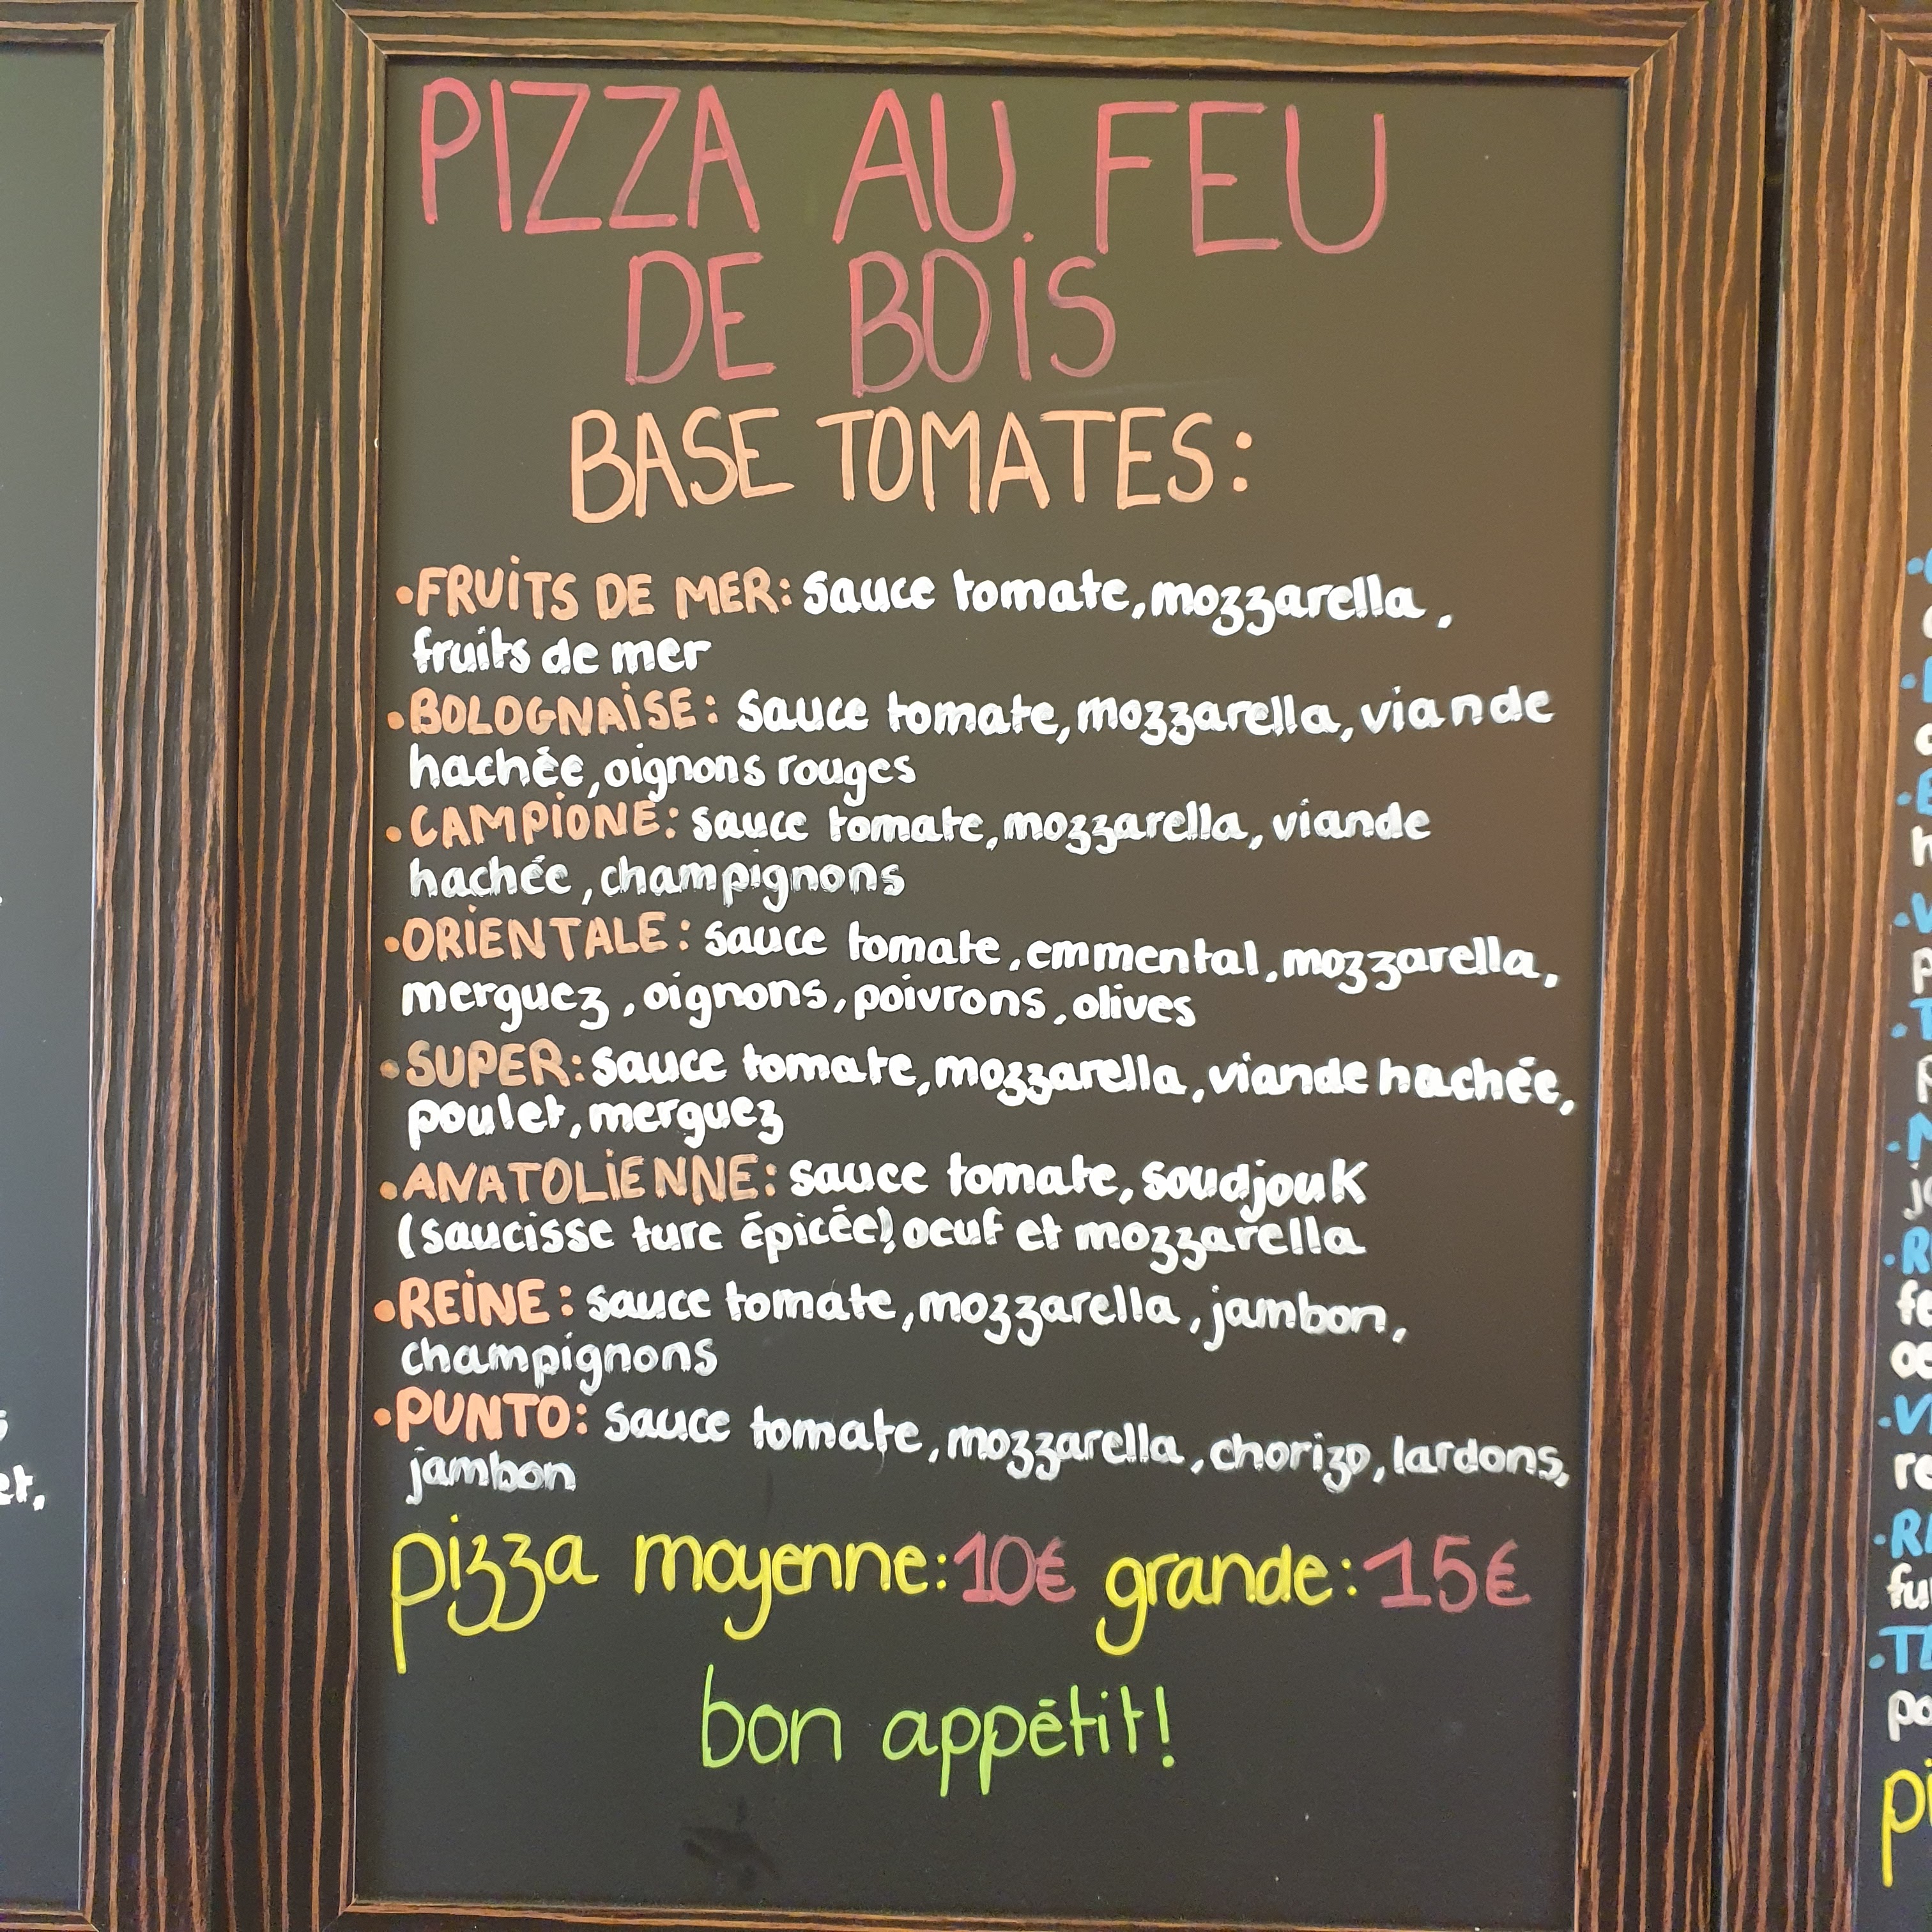 PIZZA AU FEU
DE BOiS
BASE TOMATES:
•FRUiTS DE MER: sauce tomate, mozzarella,
fruits de mer
•BOLOGNAiSE: sauce tomate, mozzarella, viande
hachée, oignons rouges
•CAMPiONE: sauce tomate, mozzarella, viande
hachée, champignons
•ORiENTALE: sauce tomate, emmental, mozzarella,
merguez, oignons, poivrons, olives
•SUPER: sauce tomate, mozzarella, viande hachée,
poulet, merguez
•ANATOLiENNE: sauce tomate, soudjouK
(saucisse turc épicée), oeuf et mozzarella
•REiNE: sauce tomate, mozzarella, jambon,
champignons
•PUNTO: sauce tomate, mozzarella, chorizo, lardons,
jambon
pizza moyenne: 10€ grande: 15€
bon appétit!